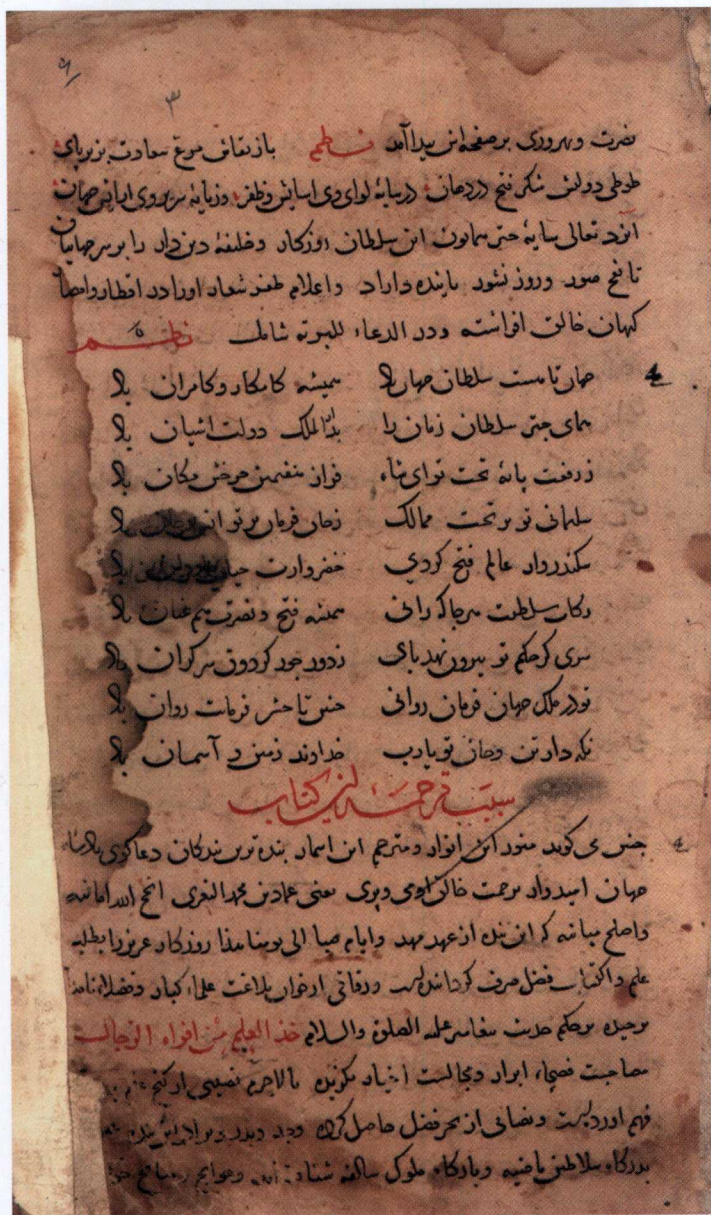 ۳
نصرت و بهروزی بر صفحه این پیدا آمد نظم باز نتافی مرغ سعادت بزیر پای
طوطی دولتش شکر فتح در دهان در سایهٔ لوای وی اسایش و ظفر
ایزد تعالی سایهٔ چتر همایون این سلطان روزکار و خلیفهٔ دین دار را بر سر جهانیان
تا نفخ صور و روز نشور پاینده داراد و اعلام ظفر شعار او را در اقطار و امصار
کیهان خافق افراشته و در الدعاء للبریه شامل نظم
جهان تا هست سلطان جهان باد همیشه کامکار و کامران باد
همای چتر سلطان زمان را بدار الملک دولت اشیان باد
ز رفعت پایهٔ تخت تو ای شاه فراز هفتمین چرخش مکان باد
سلیمانی تو بر تخت ممالک روان فرمان بر تو انس و جان باد
سکندروار عالم فتح کردی خضروارت
رکاب سلطنت هر جا که رانی همیشه فتح و نصرت هم عنان باد
سری کز حکم تو بیرون نهد پای ز دور جور کردون سر کران باد
تو در ملک جهان فرمان روانی چنین تا حشر فرمانت روان باد
نکه دار تن و جان تو یا رب خداوند زمین و آسمان باد
سبب ترجمهٔ این کتاب
چنین می کوید منور این انوار و مترجم این اسمار بنده ترین بندکان دعا کوی پادشاه
جهان امیدوار برحمت خالق ادمی و پری یعنی عماد بن محمد النعری انجح الله امانیه
و اصلح مبانیه که این بنده از عهد مهد و ایام صبا الی یومنا هذا روزکار عزیز را بطلب
علم و اکتساب فضل صرف کردانیده است و دقائق از خوان بلاغت علماء کبار و فضلاء نامدار
برچیده بر حکم حدیث پیغامبر علیه الصلوة والسلام خذ العلم من افواه الرجال
مصاحبت فصحاء ابرار و مجالست اخیار کزیده بالاجرم نصیبی از کنج
فهم اورده است و نصابی از بحر فضل حاصل کرده وجد و پدر
بدرکاه سلاطین ماضیه و بارکاه ملوک سالفه شتافته